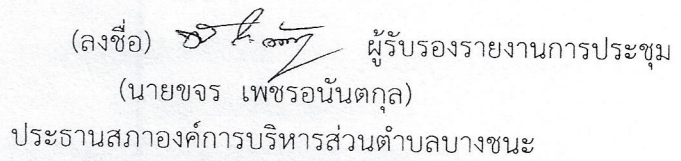 (ลงชื่อ) ผู้รับรองรายงานการประชุม
(นายขจร เพชรอนันตกุล)
ประธานสภาองค์การบริหารส่วนตำบลบางชนะ